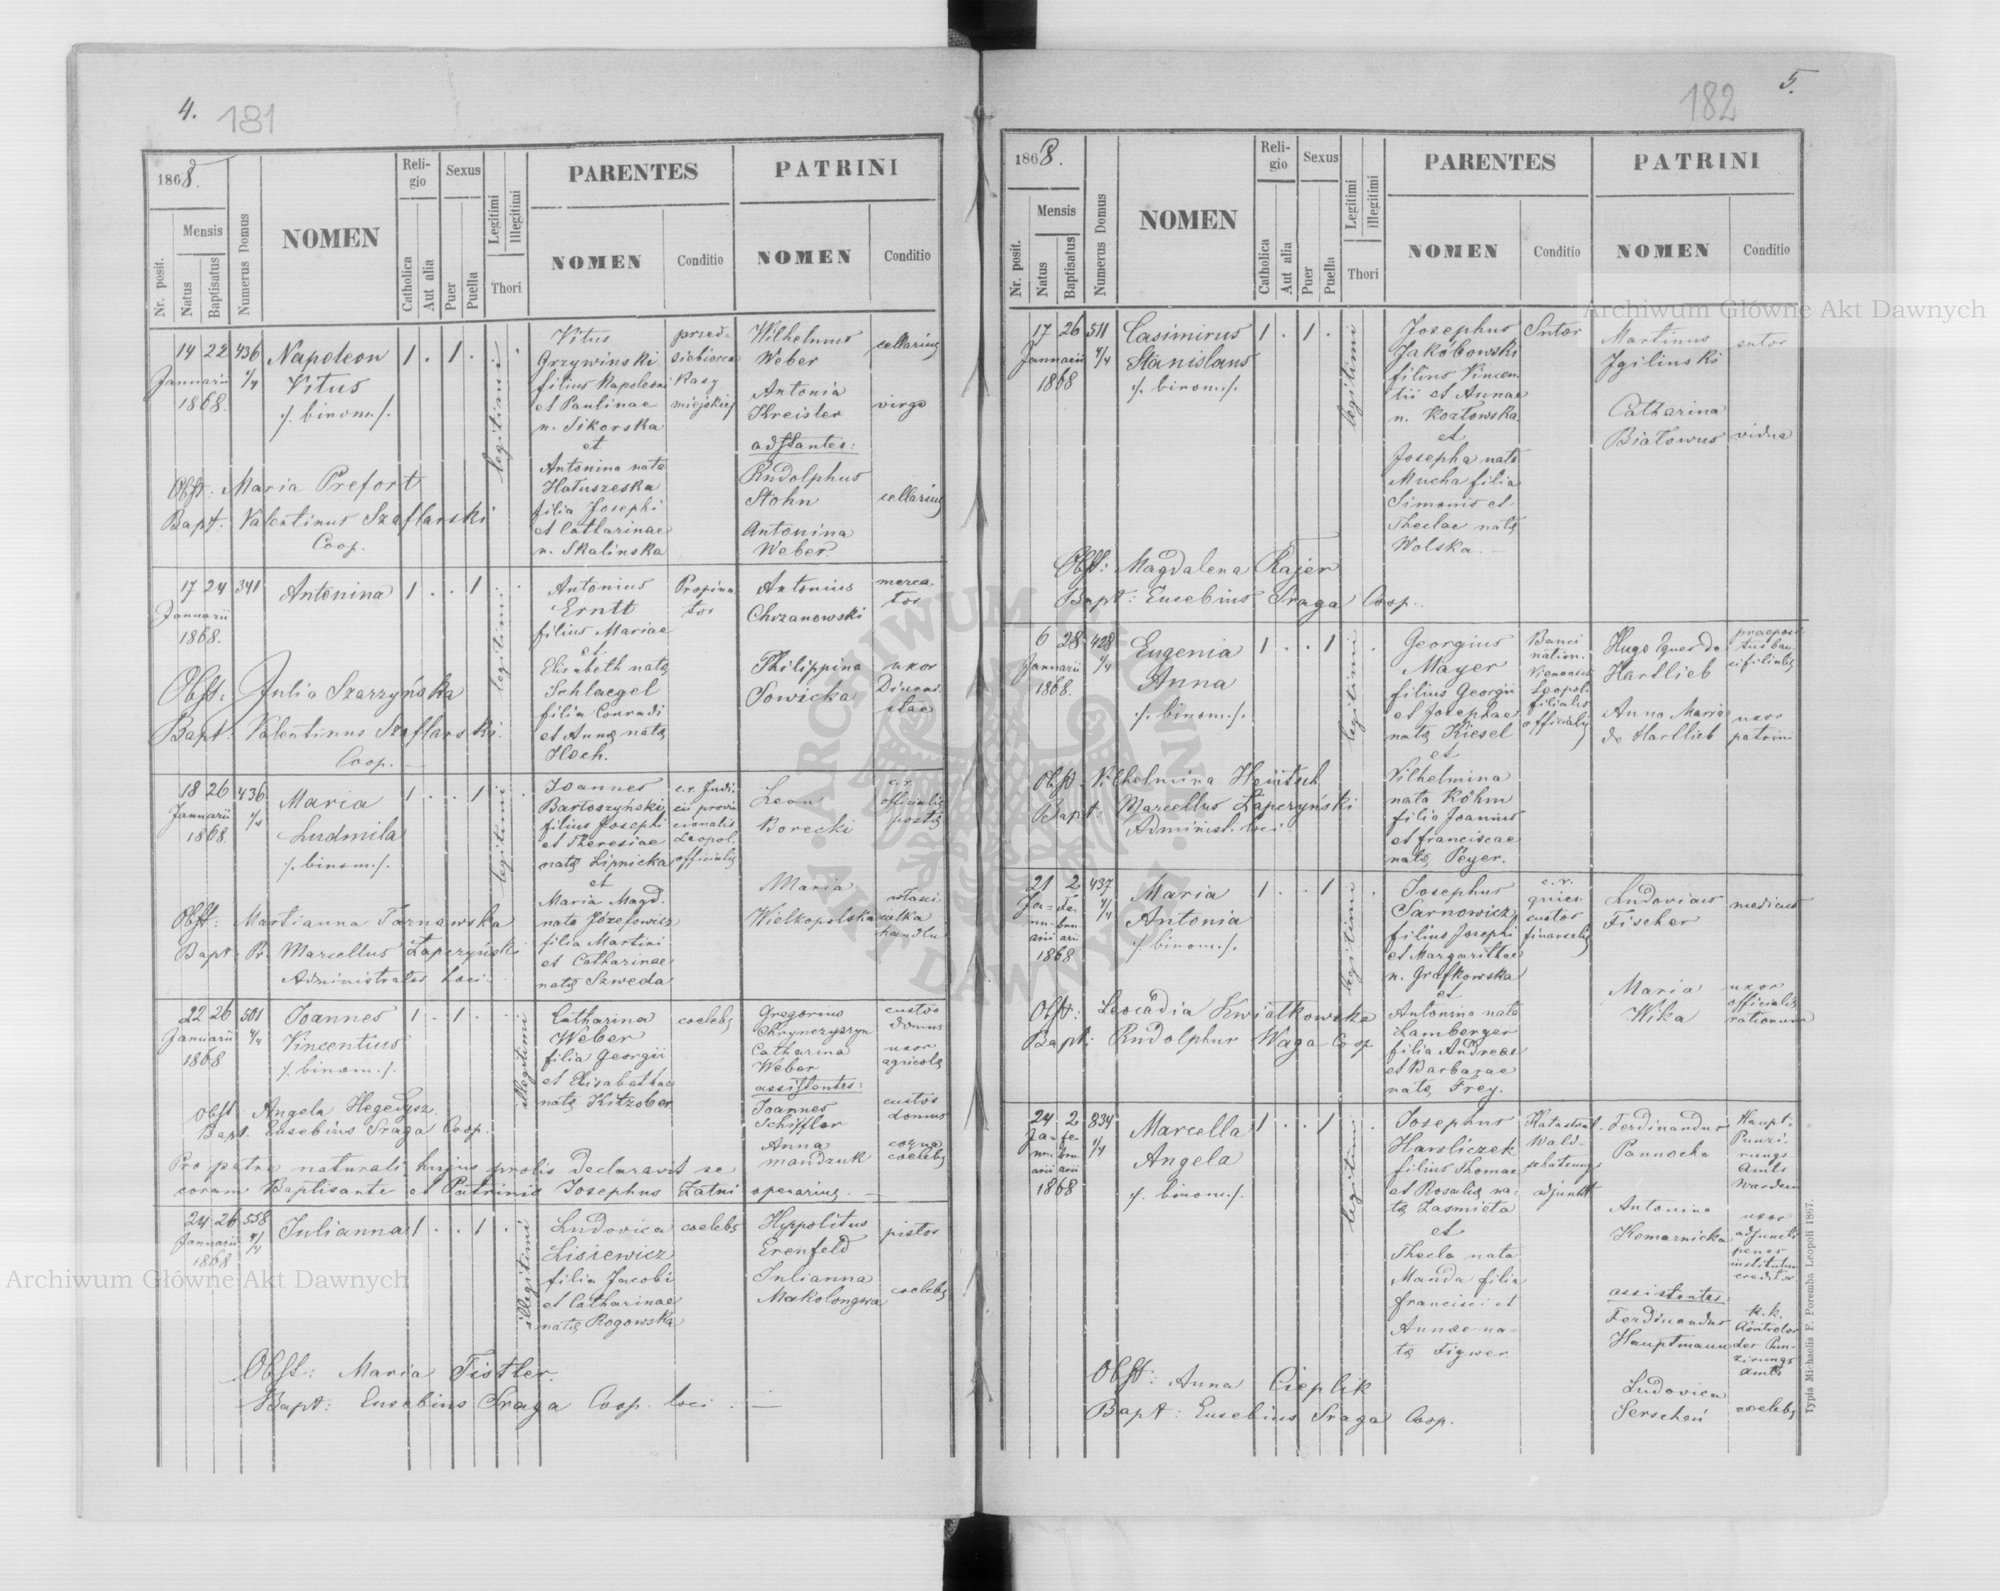 4. 181
1868.
Nr. posit.
Mensis
Natus
Baptisatus
Numerus Domus
NOMEN
Religio
Catholica
Aut alia
Sexus
Puer
Puella
Legitimi
Illegitimi
Thori
PARENTES
NOMEN
Conditio
PATRINI
NOMEN
Conditio
14 22 436
Januarii 4/4
1868.
Napoleon
Vitus
/. binom./.
1 . 1 .
legitimi
Vitus
Grzywinski
filius Napoleoni
et Paulinae
n. Sikorska
et
Antonina nata
Hatuszeska
filia Josephi
et Catharinae
n. Skalinska
przed-
siebiorca
Kasy
miejskiej
Wilhelmus
Weber
Antonia
Kreisler
adstantes:
Rudolphus
Stohn
Antonina
Weber
cellarius
virgo
cellarius
Obst: Maria Prefort
Bapt: Valentinus Szaflarski
Coop.
17 24 341
Januarii
1868.
Antonina
1 . . 1
legitimi
Antonius
Erntt
filius Mariae
et
Elisabeth nata
Schlaegel
filia Conradi
et Annae nata
Hoch.
Propina-
tor
Antonius
Chrzanowski
Philippina
Sowicka
merca-
tor
uxor
Diurni-
stae
Obst: Julia Szarzyńska
Bapt: Valentinus Szaflarski
Coop.
18 26 436
Januarii 4/4
1868
Maria
Ludmila
/. binom./.
1 . . 1 .
legitimi
Joannes
Bartoszyński
filius Josephi
et Theresiae
nata Lipnicka
et
Maria Magd.
nata Józefowicz
filia Martini
et Catharinae
nata Szweda
c.r. Judi-
cii provin-
cionalis
Leopol.
officialis
Leon
Borecki
Maria
Wielkopolska
c.r.
officialis
postae
właści-
cielka
handlu
Obst: Martianna Tarnawska
Bapt: Pr. Marcellus Zaperzyński
Administrator loci
22 26 501
Januarii 4/4
1868
Joannes
Vincentius
/. binom./.
1 . 1 .
illegitimi
Catharina
Weber
filia Georgii
et Elisabethae
nata Kitzober
coelebs
Gregorius
Chrynczyszyn
Catharina
Weber
assistentes:
Joannes
Schiffler
Anna
mandzuk
custos
domus
uxor
agricolae
custos
domus
coelebs
Obst: Angela Hegedysz.
Bapt: Eusebius Fraga Coop.
Pro patre naturali hujus prolis declaravit se
coram Baptisante et Patrinis Josephus Zatni operarius. —
24 26 558
Januarii 4/4
1868
Julianna
1 . . 1 .
illegitimi
Ludovica
Lisiewicz
filia Jacobi
et Catharinae
nata Rogowska
coelebs
Hyppolitus
Erenfeld
Julianna
Makolongwa
pistor
coelebs
Obst: Maria Fistler.
Bapt: Eusebius Fraga Coop. loci. —
182 5.
1868.
Nr. posit.
Mensis
Natus
Baptisatus
Numerus Domus
NOMEN
Religio
Catholica
Aut alia
Sexus
Puer
Puella
Legitimi
Illegitimi
Thori
PARENTES
NOMEN
Conditio
PATRINI
NOMEN
Conditio
17 26 511
Januarii 4/4
1868
Casimirus
Stanislaus
/. binom./.
1 . 1 .
legitimi
Josephus
Jakóbowski
filius Vincen-
tii et Annae
n. Kozłowska
et
Josepha nata
Mucha filia
Simonis et
Theclae nata
Wolska. —
Sutor
Martinus
Jgilinski
Catharina
Białowus
sutor
vidua
Obst: Magdalena Rajer
Bapt: Eusebius Fraga Coop.
6 28 428
Januarii 4/4
1868.
Eugenia
Anna
/. binom./.
1 . . 1 .
legitimi
Georgius
Mayer
filius Georgii
et Josephae
nata Kiesel
et
Vilhelmina
nata Röhm
filia Joannis
et franciscae
nata Peyer.
Banci
nation.
Vienensis
Leopoli
filialis
officialis
Hugo Eques de
Hartlieb
Anna Maria
de Hartlieb
praeposi-
tus ban-
ci filialis
uxor
patrini
Obst: Vilhelmina Heintsch
Bapt: Marcellus Zaperzyński
Administ. loci
21 2 437
Ja- Fe- 4/4
nu- bru-
arii arii
1868
Maria
Antonia
/. binom./.
1 . . 1 .
legitimi
Josephus
Sarnowicz
filius Josephi
et Margarithae
n. Grafkowska
et
Antonina nata
Lamberger
filia Andreae
et Barbarae
nata Frey.
c.r.
custos
financialis
Ludovicus
Fischer
Maria
Wika
medicus
uxor
officialis
rationum
Obst: Leocadia Kwiatkowska
Bapt: Rudolphus Waga Coop
24 2 834
Ja- fe- 4/4
nu- bru-
arii arii
1868
Marcella
Angela
/. binom./.
1 . . 1 .
legitimi
Josephus
Hawliczek
filius Thomae
et Rosaliae na-
ta Lasmieta
et
Thecla nata
Manda filia
francisci et
Annae na-
ta Figwer
Katastral-
Wald-
schätzungs
adjunkt
Ferdinandus
Pannocha
Antonina
Komarnicka
assistentes
Ferdinandus
Hauptmann
Ludovica
Serschen
Haupt-
Punzi-
rungs
Amts
Wardein
uxor
adjuncti
penes
institutum
creditor
k.k.
Controlor
der Pun-
zirungs
Amts
coelebs
Obst: Anna Cieplik
Bapt: Eusebius Fraga Coop.
Typis Michaelis F. Poremba Leopoli 1867.
Archiwum Główne Akt Dawnych
Archiwum Główne Akt Dawnych
ARCHIWUM GŁÓWNE AKT DAWNYCH